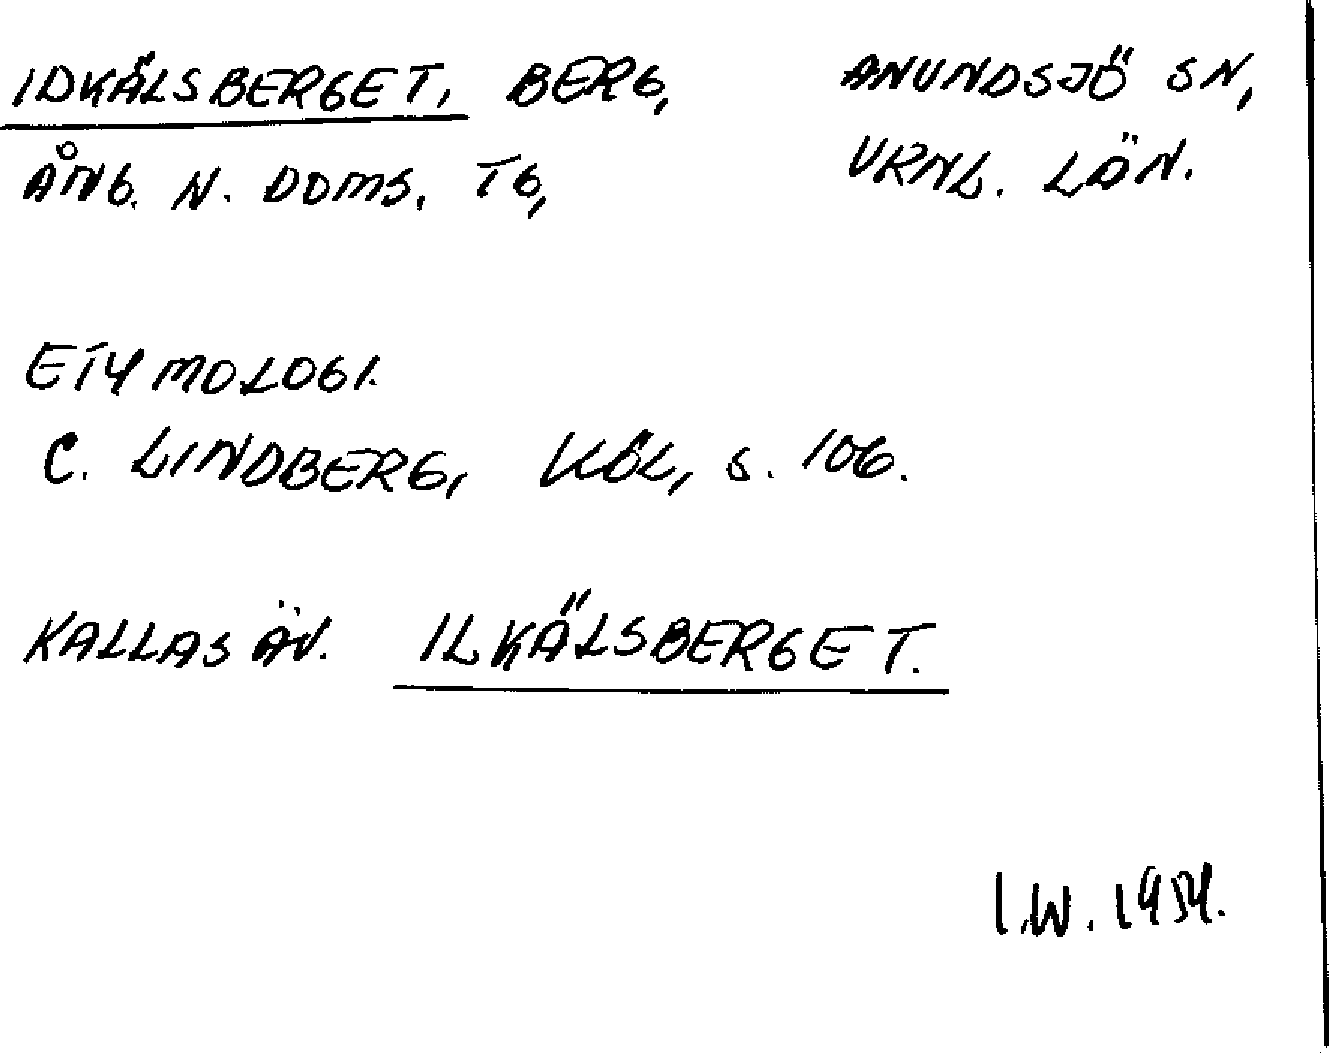 IDKÄLSBERGET, BERG, ANUNDSJÖ SN,
ÅNG. N. DOMS. TG, VRNL. LÄN.
ETYMOLOGI.
C. LINDBERG, KÖL, S. 106.
KALLAS ÄV. ILKÄLSBERGET.
I.W. 1954.